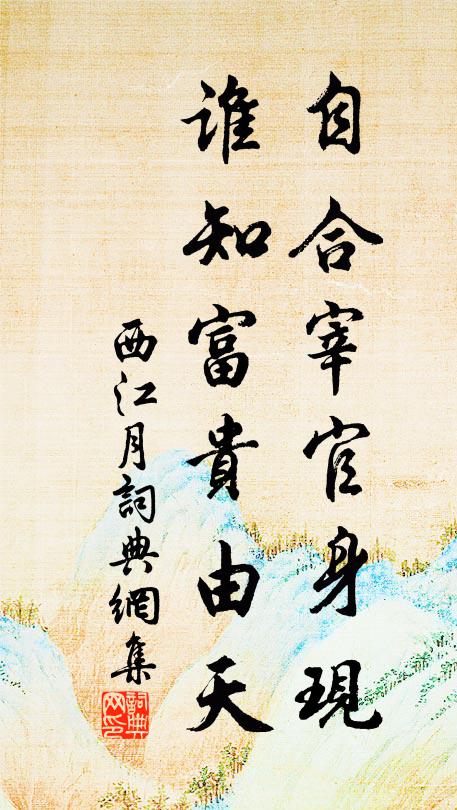 自合宰官身現
誰知富貴由天
西江月詞典網集
詞典
网印